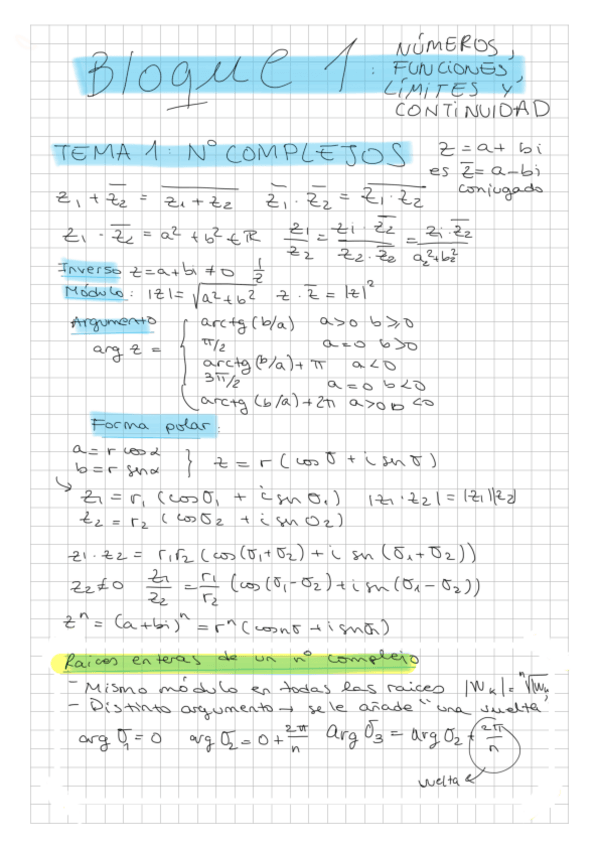 Bloque 1: NÚMEROS, FUNCIONES, LÍMITES Y CONTINUIDAD
TEMA 1: Nº COMPLEJOS z = a + bi
es z̅ = a - bi
conjugado
z₁ + z̅₂ = z̅₁ + z̅₂ z̅₁ · z̅₂ = z̅₁ · z̅₂
z₁ · z̅₂ = a² + b² ∈ ℝ z₁/z₂ = (z₁ · z̅₂)/(z₂ · z̅₂) = (z₁ · z̅₂)/(a₂² + b₂²)
Inverso z = a + bi ≠ 0 1/z
Módulo: |z| = √(a² + b²) z · z̅ = |z|²
Argumento
arg z = { arctg (b/a) a>0 b≥0
π/2 a=0 b>0
arctg (b/a) + π a<0
3π/2 a=0 b<0
arctg (b/a) + 2π a>0 b<0
Forma polar:
a = r cos α
b = r sin α } z = r (cos σ + i sin σ)
↳ z₁ = r₁ (cos σ₁ + i sin σ₁) |z₁ · z₂| = |z₁||z₂|
z₂ = r₂ (cos σ₂ + i sin σ₂)
z₁ · z₂ = r₁r₂ (cos (σ₁ + σ₂) + i sin (σ₁ + σ₂))
z₂ ≠ 0 z₁/z₂ = r₁/r₂ (cos (σ₁ - σ₂) + i sin (σ₁ - σ₂))
zⁿ = (a + bi)ⁿ = rⁿ (cos nσ + i sin σn)
Raices enteras de un nº complejo
- Mismo módulo en todas las raices |Wₖ| = ⁿ√|w|,
- Distinto argumento → se le añade "una vuelta
arg σ₁ = 0 arg σ₂ = 0 + 2π/n arg σ₃ = arg σ₂ + 2π/n
vuelta